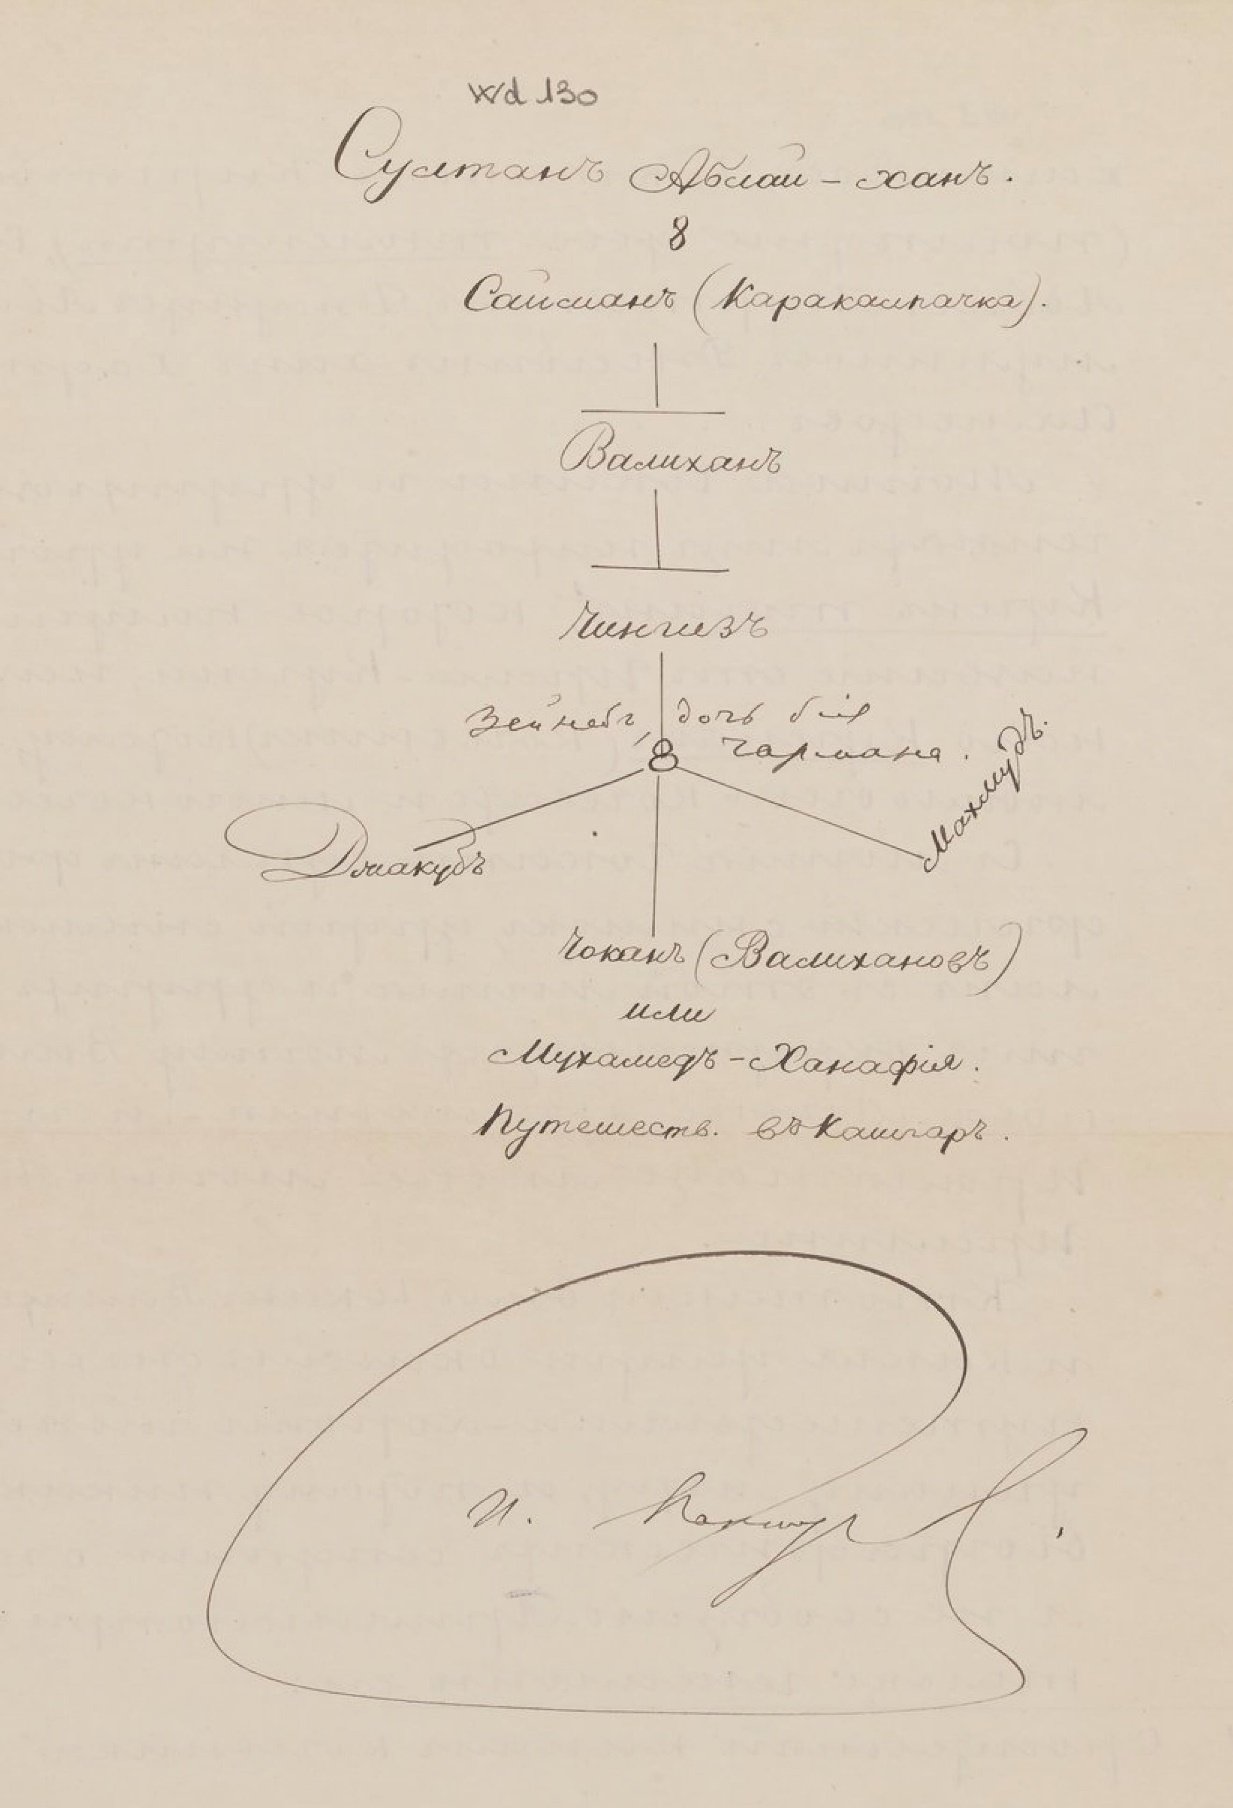 Wd 130
Султанъ Аблай - ханъ.
8
Сайманъ (Каракалпачка).
Валиханъ
Чингизъ
Зейнебъ, дочь бія
Чармана.
8
Джакубъ
Махмудъ.
Чоканъ (Валихановъ)
или
Мухамедъ - Ханафія.
Путешеств. въ Кашгаръ.
И.